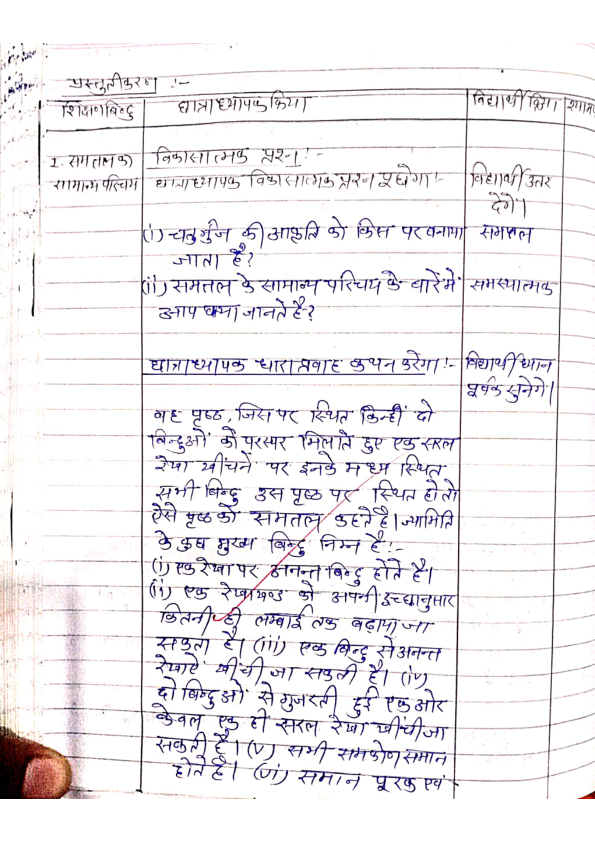 प्रस्तुतीकरण :-
शिक्षणबिन्दु छात्राध्यापक क्रिया विद्यार्थी क्रिया
1. समतल का विकासात्मक प्रश्न :-
सामान्य परिचय छात्राध्यापक विकासात्मक प्रश्न पूछेगा :- विद्यार्थी उत्तर
देगें।
(i) चतुर्भुज की आकृति को किस पर बनाया समतल
जाता है?
(ii) समतल के सामान्य परिचय के बारे में समस्यात्मक
आप क्या जानते है?
छात्राध्यापक धाराप्रवाह कथन करेगा :- विद्यार्थी ध्यान
पूर्वक सुनेगे।
वह पृष्ठ, जिस पर स्थित किन्हीं दो
बिन्दुओं को परस्पर मिलाते हुए एक सरल
रेखा खींचने पर इनके मध्य स्थित
सभी बिन्दु उस पृष्ठ पर स्थित हो तो
ऐसे पृष्ठ को समतल कहते है। ज्यामिति
के कुछ मुख्य बिन्दु निम्न है :-
(i) एक रेखा पर अनन्त बिन्दु होते है।
(ii) एक रेखाखण्ड को अपनी इच्छानुसार
कितनी ही लम्बाई तक बढ़ाया जा
सकता है। (iii) एक बिन्दु से अनन्त
रेखाऐं खींची जा सकती है। (iv)
दो बिन्दुओं से गुजरती हुई एक ओर
केवल एक ही सरल रेखा खींची जा
सकती है। (v) सभी समकोण समान
होते है। (vi) समान पूरक एवं